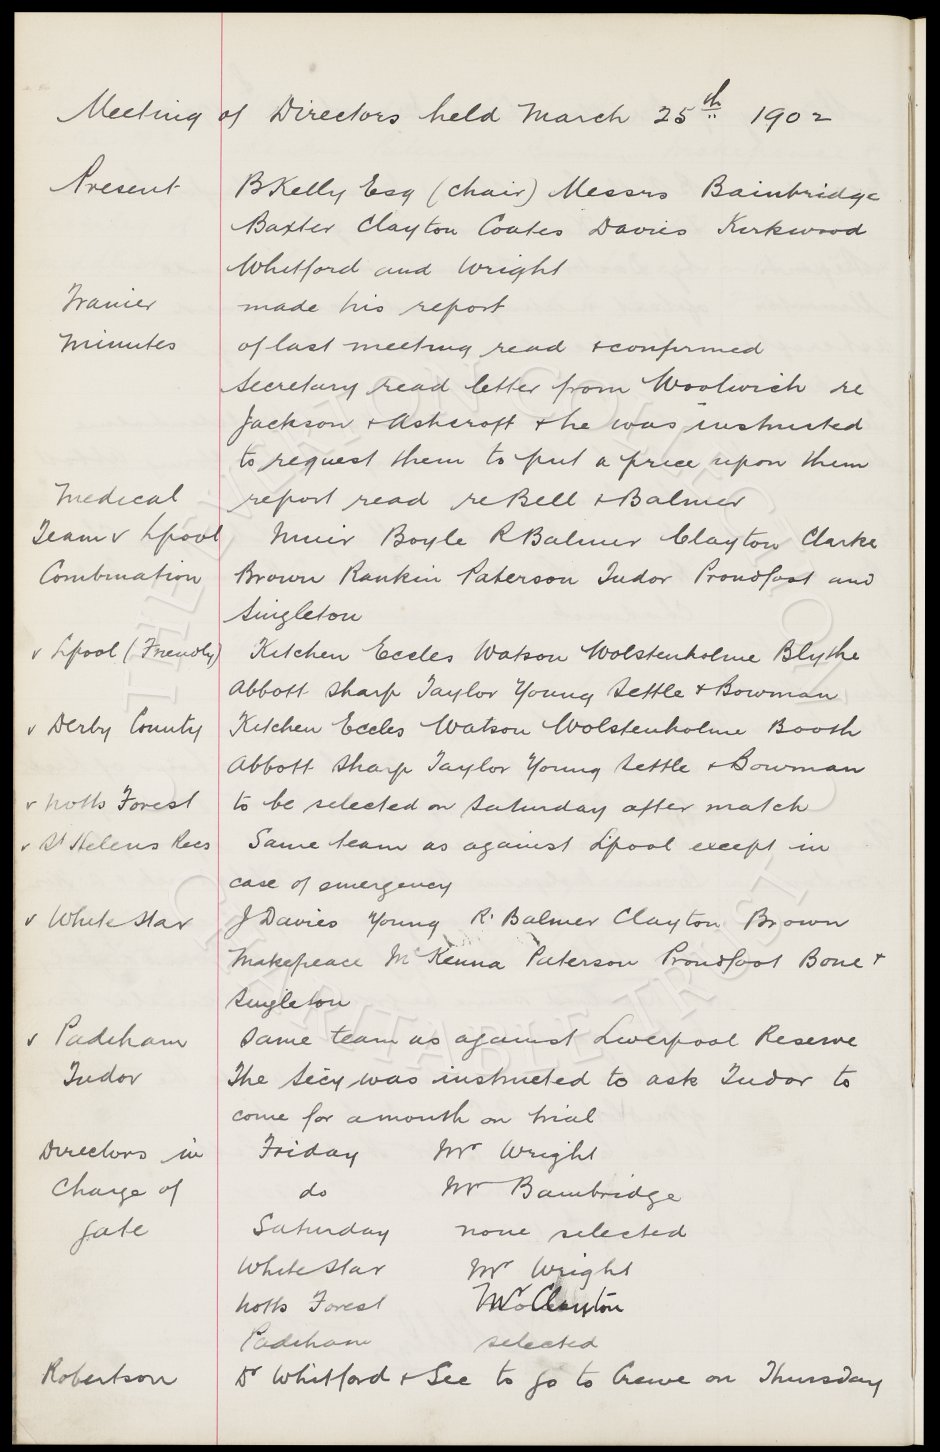 Meeting of Directors held March 25th 1902
Present B Kelly Esq (chair) Messrs Bainbridge
Baxter Clayton Coates Davies Kirkwood
Whitford and Wright
Trainer made his report
Minutes of last meeting read & confirmed
Secretary read letter from Woolwich re
Jackson & Ashcroft & he was instructed
to request them to put a price upon them
Medical report read re Bell & Balmer
Team v Lpool Muir Boyle R Balmer Clayton Clarke
Combination Brown Rankin Paterson Tudor Proudfoot and
Singleton
v Lpool (Friendly) Kitchen Eccles Watson Wolstenholme Blythe
Abbott Sharp Taylor Young Settle & Bowman
v Derby County Kitchen Eccles Watson Wolstenholme Booth
Abbott Sharp Taylor Young Settle & Bowman
v Notts Forest to be selected on Saturday after match
v St Helens Recs Same team as against L'pool except in
case of emergency
v White Star J Davies Young R. Balmer Clayton Brown
Makepeace McKenna Paterson Proudfoot Bone &
Singleton
v Padiham Same team as against Liverpool Reserve
Tudor The Secy was instructed to ask Tudor to
come for a month on trial
Directors in Friday Mr Wright
Charge of do Mr Bainbridge
gate Saturday none selected
White Star Mr Wright
Notts Forest Mr Clayton
Padiham selected
Robertson Dr Whitford & Sec to go to Crewe on Thursday
THE EVERTON COLLECTION
CHARITABLE TRUST